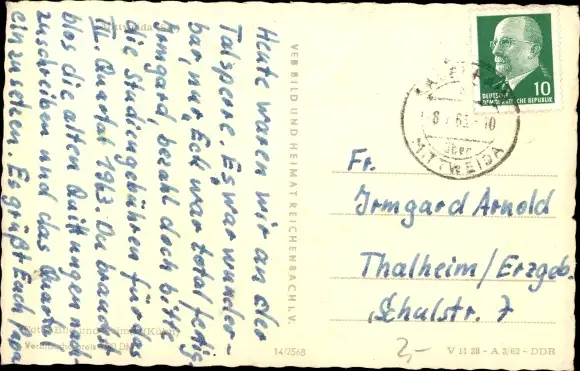 Heute waren wir an der
Talsperre. Es war wunder-
bar, nur Eck war total fertig.
Irmgard, bezahl doch bitte
die Studiengebühren für das
III. Quartal 1963. Du brauchst
blos die alten Quittungen nach-
zuschreiben und das Quartal
einzusetzen. Es grüßt Euch
VEB BILD UND HEIMAT REICHENBACH I. V.
DEUTSCHE
DEMOKRATISCHE REPUBLIK
10
über
MITTWEIDA
Fr.
Irmgard Arnold
Thalheim/Erzgeb.
Schulstr. 7
2,-
14/2568
V 11 28 - A 3/62 - DDR